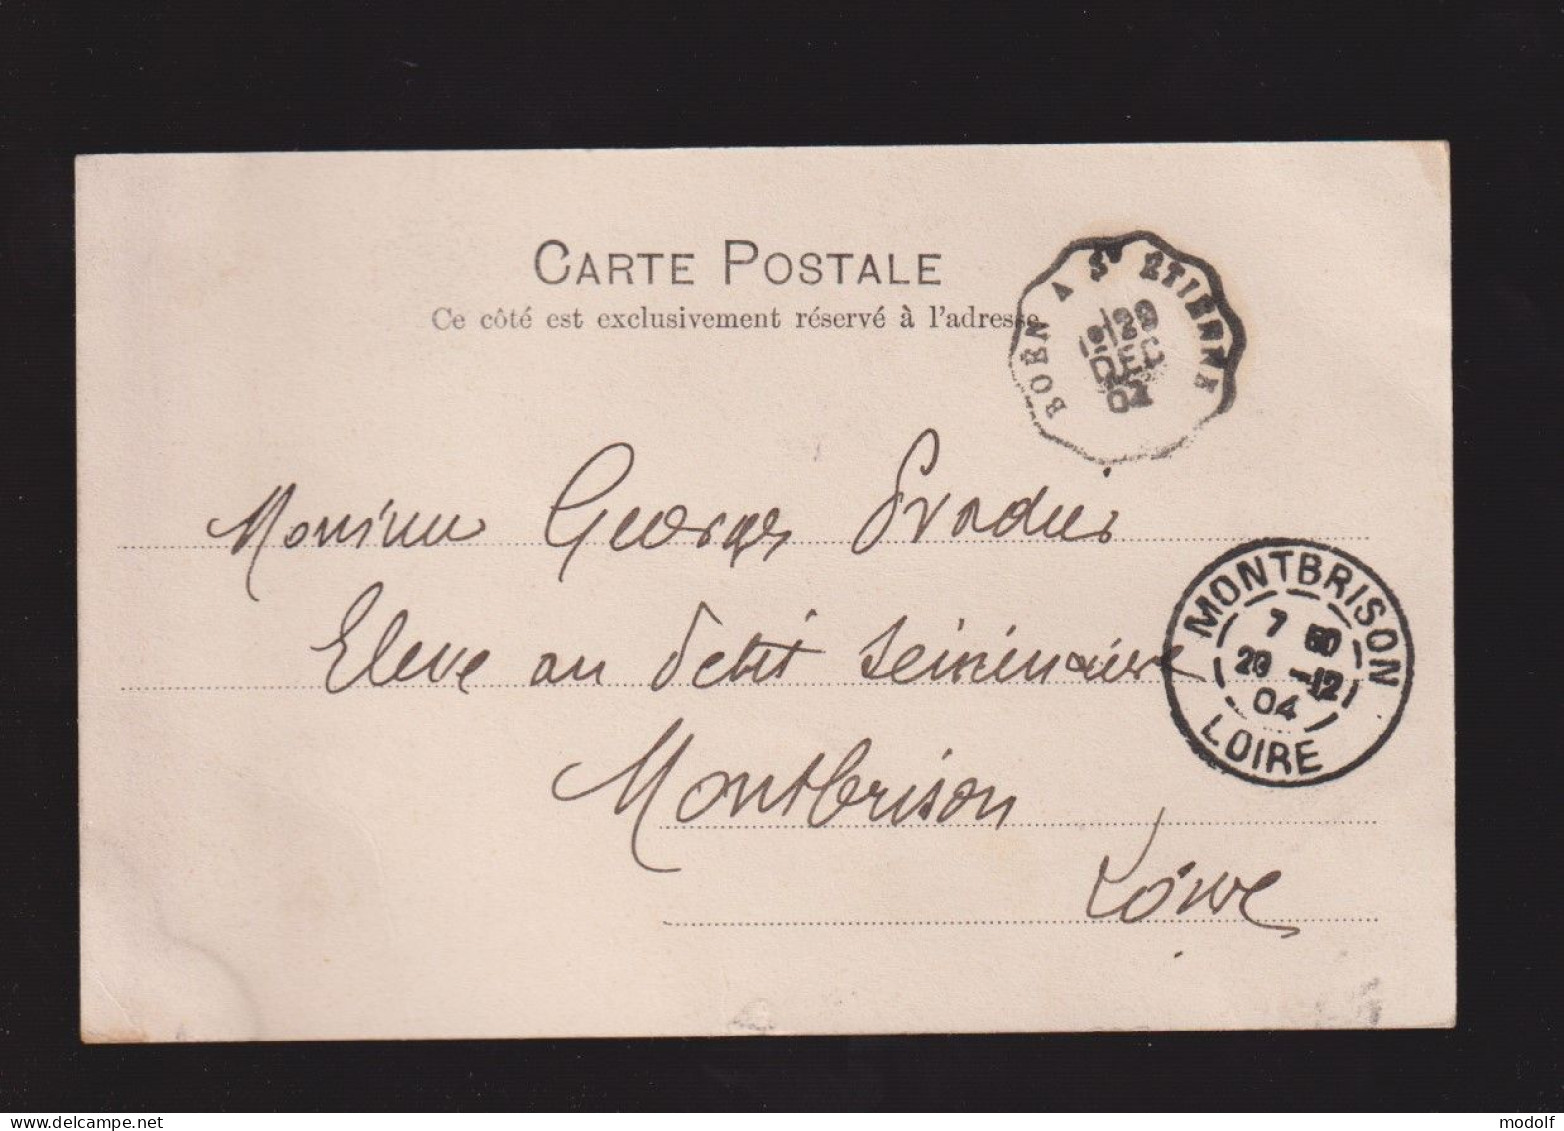 CARTE POSTALE
Ce côté est exclusivement réservé à l'adresse
BOËN A St ÉTIENNE
29
DEC
04
Monsieur Georges Pradier
Eleve au Petit Séminaire
Montbrison
Loire
MONTBRISON
7 50
29 -12
04
LOIRE
modolf